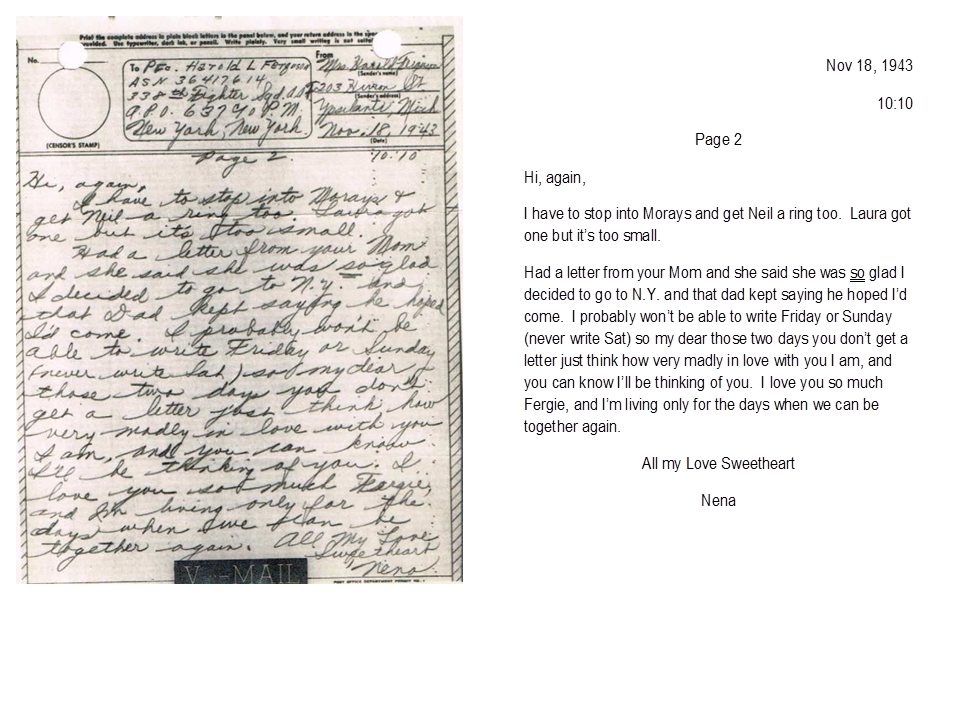 Print the complete address in plain block letters in the panel below, and your return address in the space
provided. Use typewriter, dark ink, or pencil. Write plainly. Very small writing is not suitable.
No.
(CENSOR'S STAMP)
To Pfc. Harold L Ferguson
ASN 36417614
338th Fighter Sqd.
A.P.O. 637 % P.M.
New York, New York.
From
Mrs. Harold Ferguson
(Sender's name)
203 St.
(Sender's address)
Ypsilanti, Mich
Nov. 18, 1943
(Date)
Page 2.
10:10
Hi, again,
I have to stop into Morays &
get Neil a ring too. Laura got
one but it's too small.
Had a letter from your Mom
and she said she was so glad
I decided to go to N.Y. and
that Dad kept saying he hoped
I'd come. I probably won't be
able to write Friday or Sunday
(never write Sat) so my dear
those two days you don't
get a letter just think how
very madly in love with you
I am, and you can know
I'll be thinking of you. I
love you so much Fergie,
and I'm living only for the
days when we can be
together again. All My Love
Sweetheart
Nena.
V···-MAIL
POST OFFICE DEPARTMENT PERMIT NO. 1
Nov 18, 1943
10:10
Page 2
Hi, again,
I have to stop into Morays and get Neil a ring too. Laura got
one but it's too small.
Had a letter from your Mom and she said she was so glad I
decided to go to N.Y. and that dad kept saying he hoped I'd
come. I probably won't be able to write Friday or Sunday
(never write Sat) so my dear those two days you don't get a
letter just think how very madly in love with you I am, and
you can know I'll be thinking of you. I love you so much
Fergie, and I'm living only for the days when we can be
together again.
All my Love Sweetheart
Nena